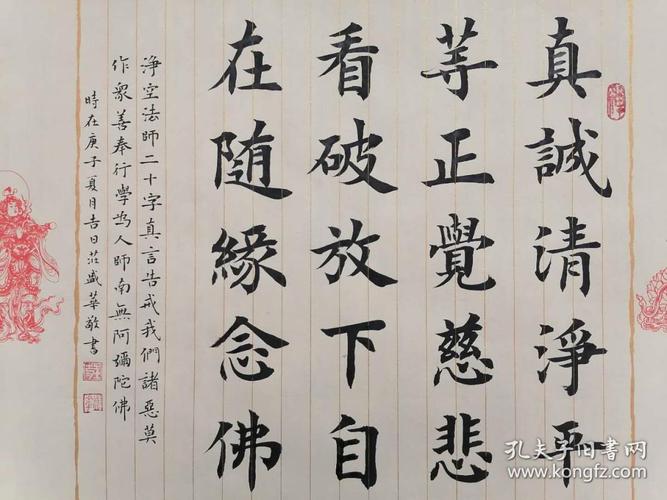 真誠清淨平
荨正覺慈悲
看破放下自
在随緣念佛
淨空法師二十字真言告戒我們諸惡莫
作衆善奉行學為人師南無阿彌陀佛
時在庚子夏月吉日莊盛華敬書
孔夫子旧书网
www.kongfz.com